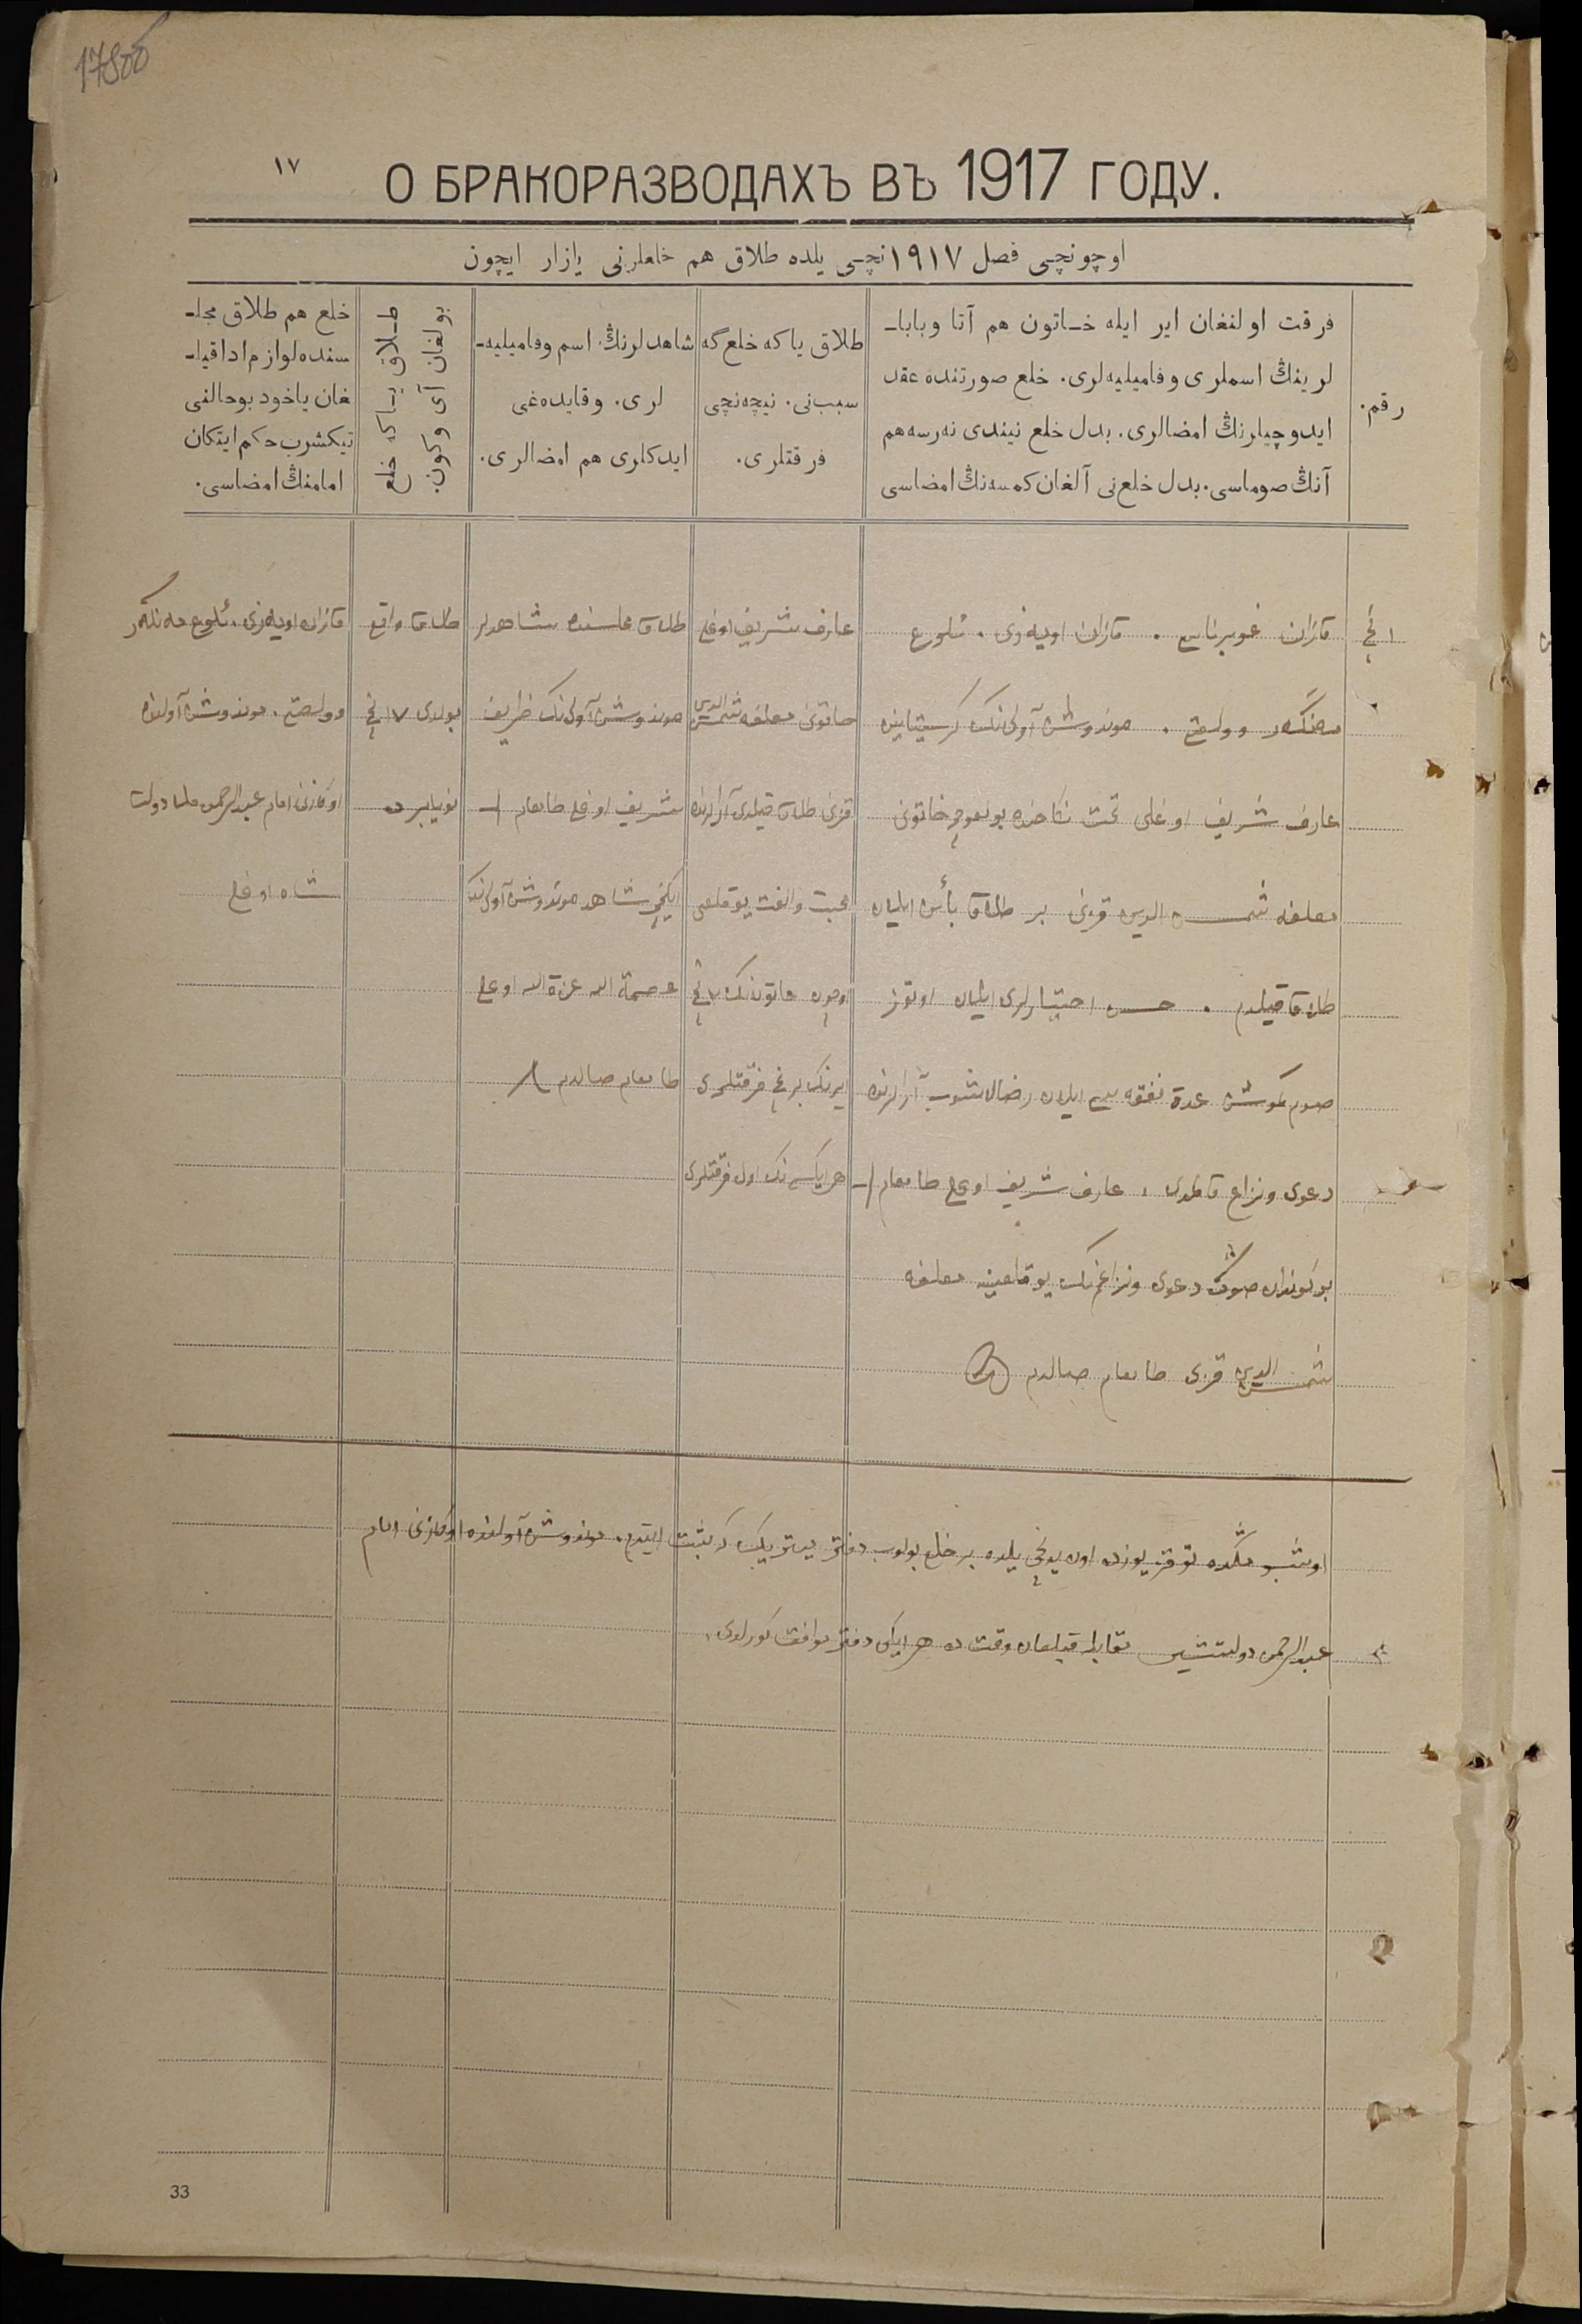 178об
١٧
О БРАКОРАЗВОДАХЪ ВЪ 1917 ГОДУ.
اوچونچی فصل ١٩١٧نچی یلده طلاق هم خلعلرنی یازار ایچون
رقم.
فرقت اولنغان ایر ایله خاتون هم آتا وبابا-
لرینڭ اسملری وفامیلیه‌لری. خلع صورتنده عقد
ایدوچیلرنڭ امضالری. بدل خلع نیندی نه‌رسه هم
آنڭ صوماسی. بدل خلع‌نی آلغان کمسه‌نڭ امضاسی
طلاق یا که خلع گه
سبب‌نی. نیچه‌نچی
فرقتلری.
شاهدلرنڭ اسم وفامیلیه-
لری. وقایده‌غی
ایدکلری هم امضالری.
طلاق یاکه خلع
بولغان آی وکون.
خلع هم طلاق مجل-
سنده لوازم ادا قیل-
غان یاخود بو حالنی
تیکشرب حکم ایتکان
امامنڭ امضاسی.
١نچی
قازان غوبیرناسی . قازان اویه‌زی .
وولصتی . آولی‌نک کرستیانینه
عارف شریف اوغلی تحت نکاحنده بولغوچی خاتونی
شمس الدین قزینی بر طلاق بائن ایلان
طلاق قیلدم . حسن اختیارلری ایلان اوتوز
صوم کوموش عدة نفقه سی ایلان رضالاشوب آرالرنده
دعوی ونزاع قالمدی ، عارف شریف اوغلی طامغام
بو کوندان صوڭ دعوی ونزاعم‌نک یوقلغینه
شمس الدین قزی طامغام صالدم
عارف شریف اوغلی
خاتونی شمس الدین
قزین طلاق قیلدی آرالرنده
محبت والفت یوقلغی
اوچون خاتون‌نک ٧نچی
ایرنک برنچی فرقتلری
هر ایکسی‌نک اول فرقتلری
طلاق مجلسنده شاهدلر
آولی‌نک ظریف
شریف اوغلی طامغام
ایکنچی شاهد آولی‌نک
عصمة الله عزة الله اوغلی
طامغام صالدم
طلاق واقع
بولدی ١٧نچی
نویابرده
قازان اویه‌زی،
وولصتی، آولنده
اوکازنی امام عبدالرحمن ملا دولت
شاه اوغلی
اوشبو مڭده توقز یوزده اون یدنچی یلده بر خلع بولوب دفتر میتریک‌که ثبت ایتدم. آولنده اوکازنی امام
عبدالرحمن دولتشین مقابله قیلغان وقت‌ده هر ایکی دفتر موافق کورلدی.
33